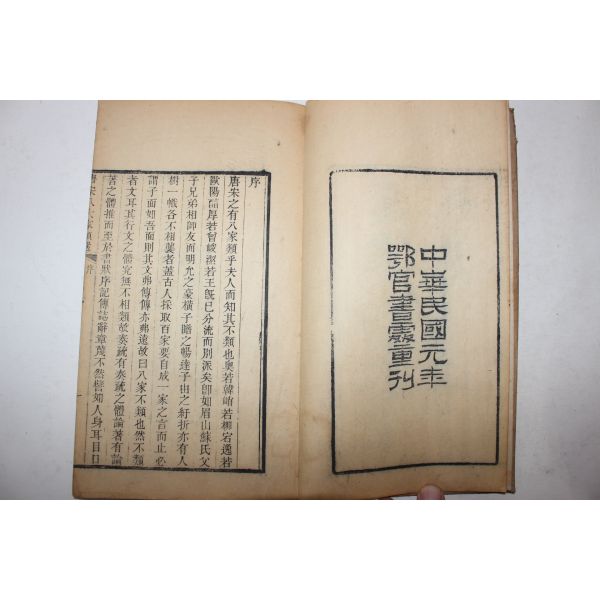 中華民國元年
鄂官書處重刊
序
唐宋之有八家類乎夫人而知其不類也奧若韓峭若柳宕逸若
歐陽醇厚若曾峻潔若王旣已分流而別派矣卽如眉山蘇氏父
子兄弟相師友而明允之豪橫子瞻之暢達子由之紆折亦有人
樹一幟各不相襲者蓋古人採取百家要自成一家之言而止必
謂子面如吾面則其文弗傳傳亦弗遠故曰八家不類可也然不類
者文耳其行文之體究無不相類故奏疏有奏疏之體論著有論
著之體推而至於書狀序記傳誌辭章蔑不然譬如人身耳目口
唐宋八大家類選 序